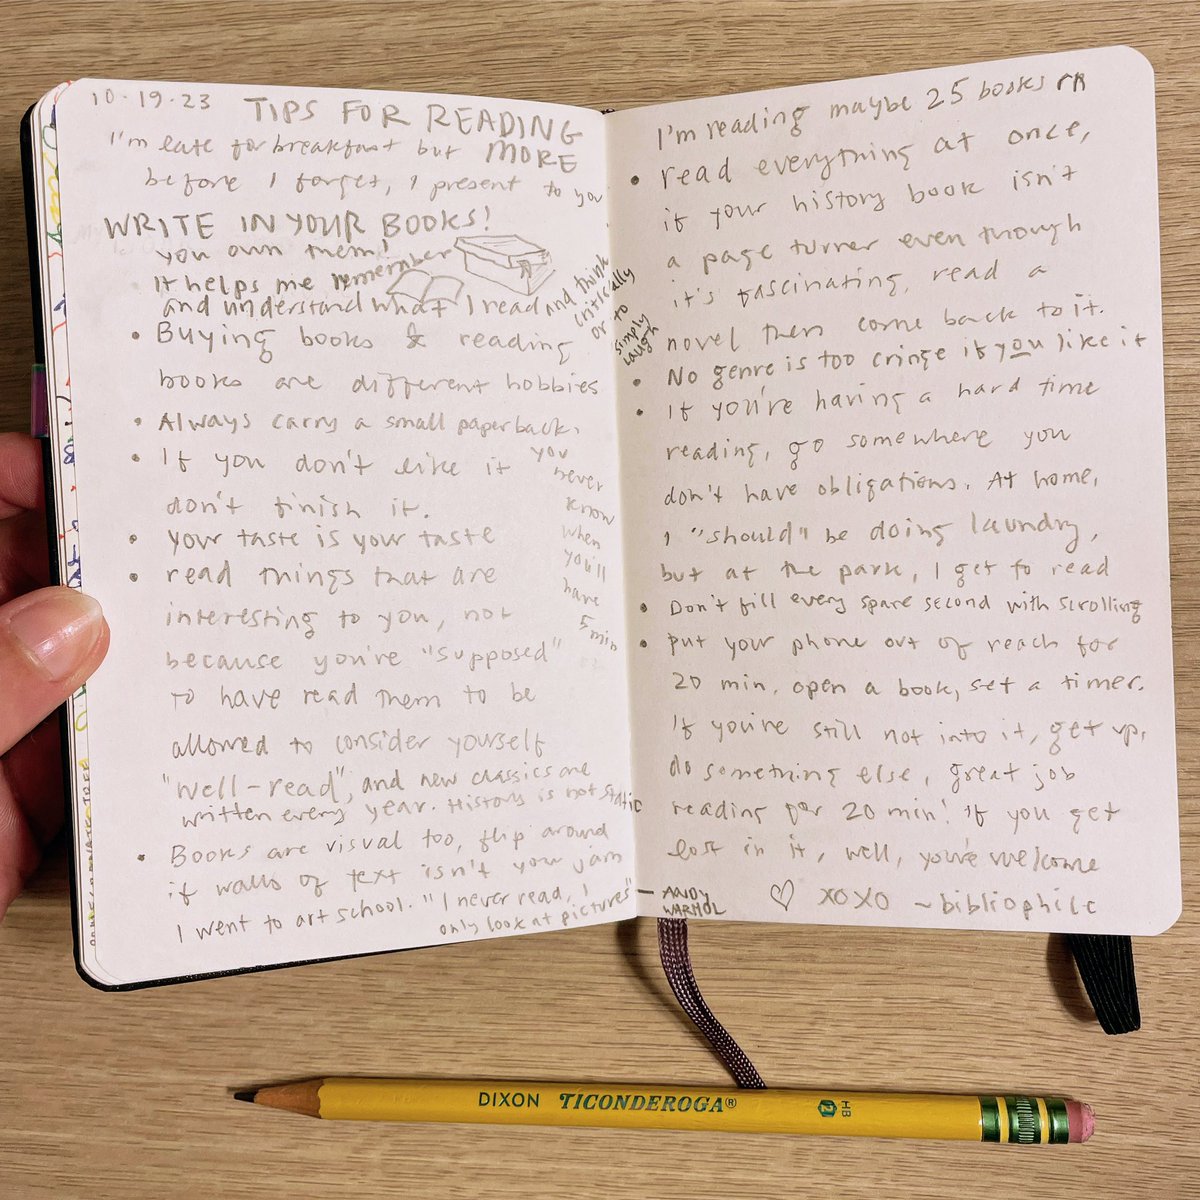 10.19.23 TIPS FOR READING
I'm late for breakfast but MORE
before I forget, I present to you
WRITE IN YOUR BOOKS!
you own them!
It helps me remember
and understand what I read and think
critically
or to
simply
laugh
• Buying books & reading
books are different hobbies
• Always carry a small paperback,
you
never
know
when
you'll
have
5 min
• If you don't like it
don't finish it.
• your taste is your taste
• read things that are
interesting to you, not
because you're "supposed"
to have read them to be
allowed to consider yourself
"well-read", and new classics are
written every year. History is not static
• Books are visual too, flip around
if walls of text isn't your jam
I went to art school. "I never read, I
only look at pictures" — ANDY
WARHOL
I'm reading maybe 25 books rn
• read everything at once,
if your history book isn't
a page turner even though
it's fascinating, read a
novel then come back to it.
• No genre is too cringe if you like it
• If you're having a hard time
reading, go somewhere you
don't have obligations. At home,
I "should" be doing laundry,
but at the park, I get to read
• Don't fill every spare second with scrolling
• put your phone out of reach for
20 min, open a book, set a timer.
If you're still not into it, get up,
do something else, great job
reading for 20 min! If you get
lost in it, well, you're welcome
♡ XOXO ~bibliophile
DIXON TICONDEROGA® 2 HB